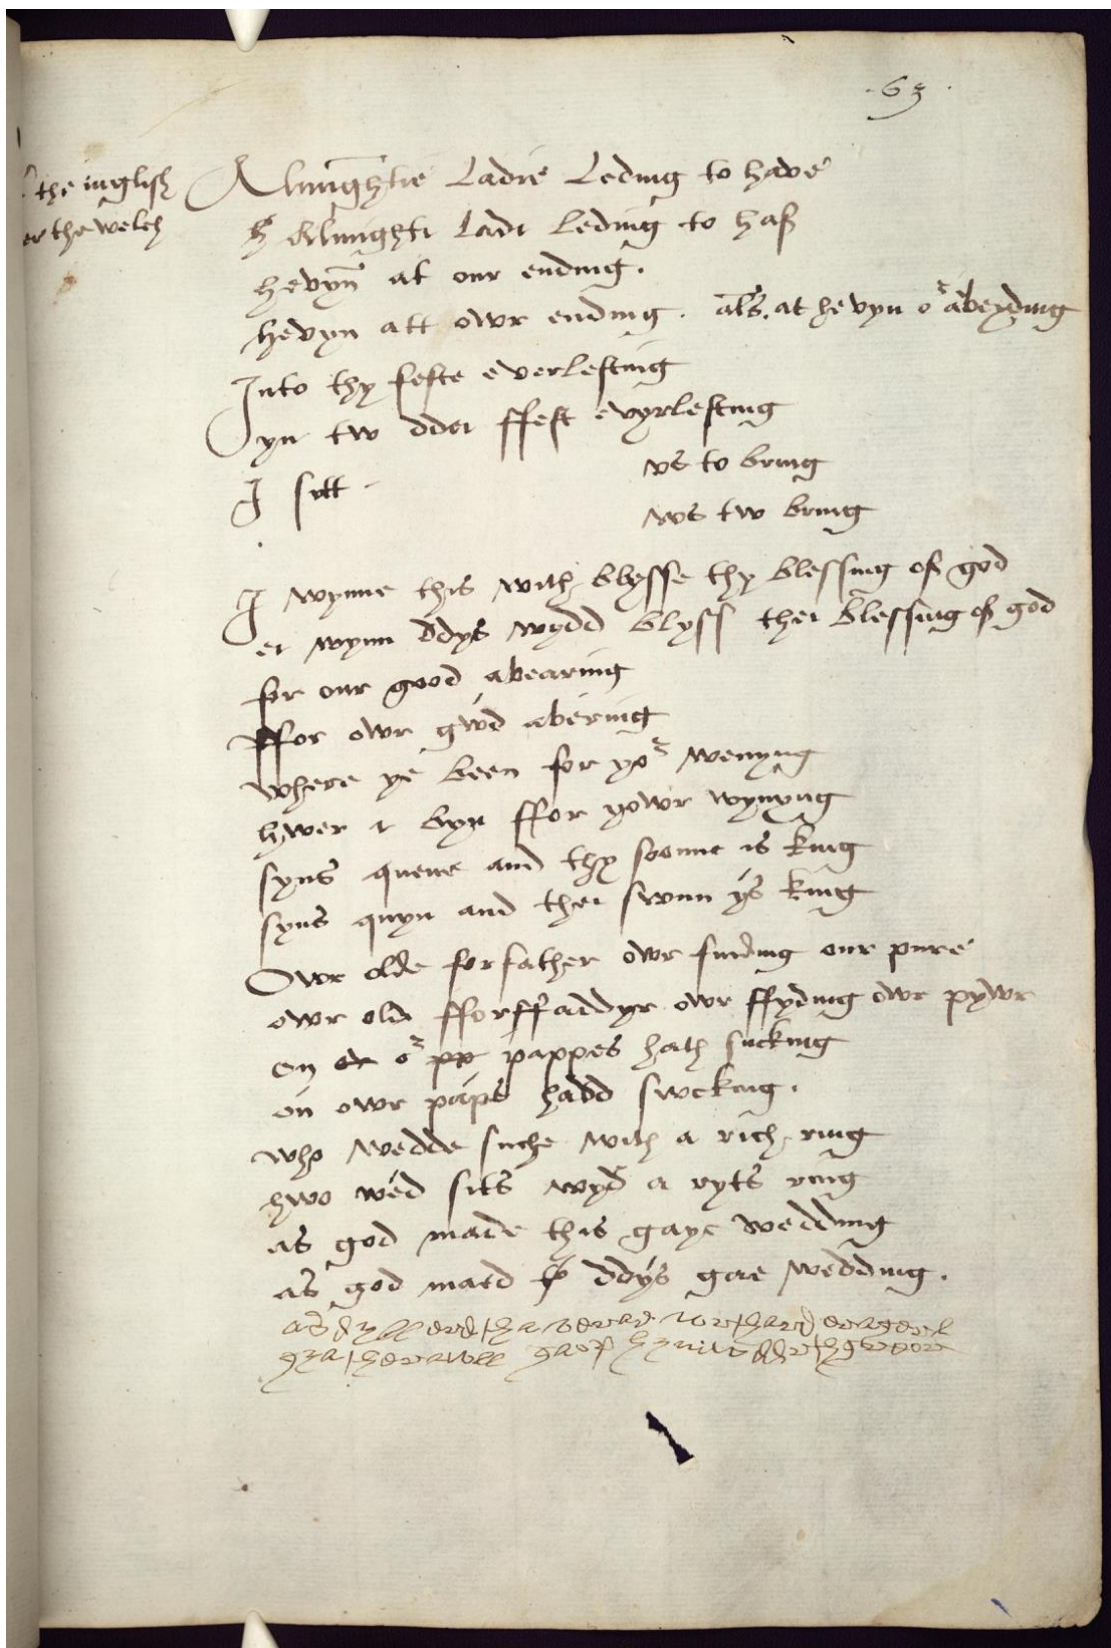 .63.
the inglish
er the welch
Almightie Ladie Leding to have
Almighti Ladi leding to haf
hevyn at our ending.
hevyn att owr ending. als. at hevyn or abeyding
Into thy feste everlesting
yn tw ddei ffest evyrlesting
I sett vs to bring
ws tw bring
I wynne this with blysse thy blessing of god
ei wynn ddys wydd blyss thei blessing of god
for our good abearing
ffor owr gwd abering
where ye been for yor wenyng
hwer i byn ffor yowr wynyng
syns quene and thy soonne is king
syns qwyn and thei swnn ys king
Owr olde forfather owr finding our pure
owr old fforffaddyr owr ffyding owr pywr
on or pappes hath sucking
on owr paps hadd swcking.
who wedde suche with a rich ring
hwo wed sits wydd a ryts ring
as god made this gaye wedding
as god maed ddys gae wedding.